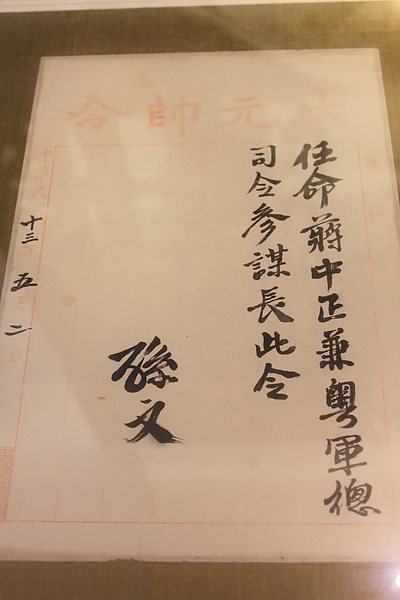 大元帥令
任命蔣中正兼粵軍總
司令參謀長此令
孫文
中華民國十三年五月二日